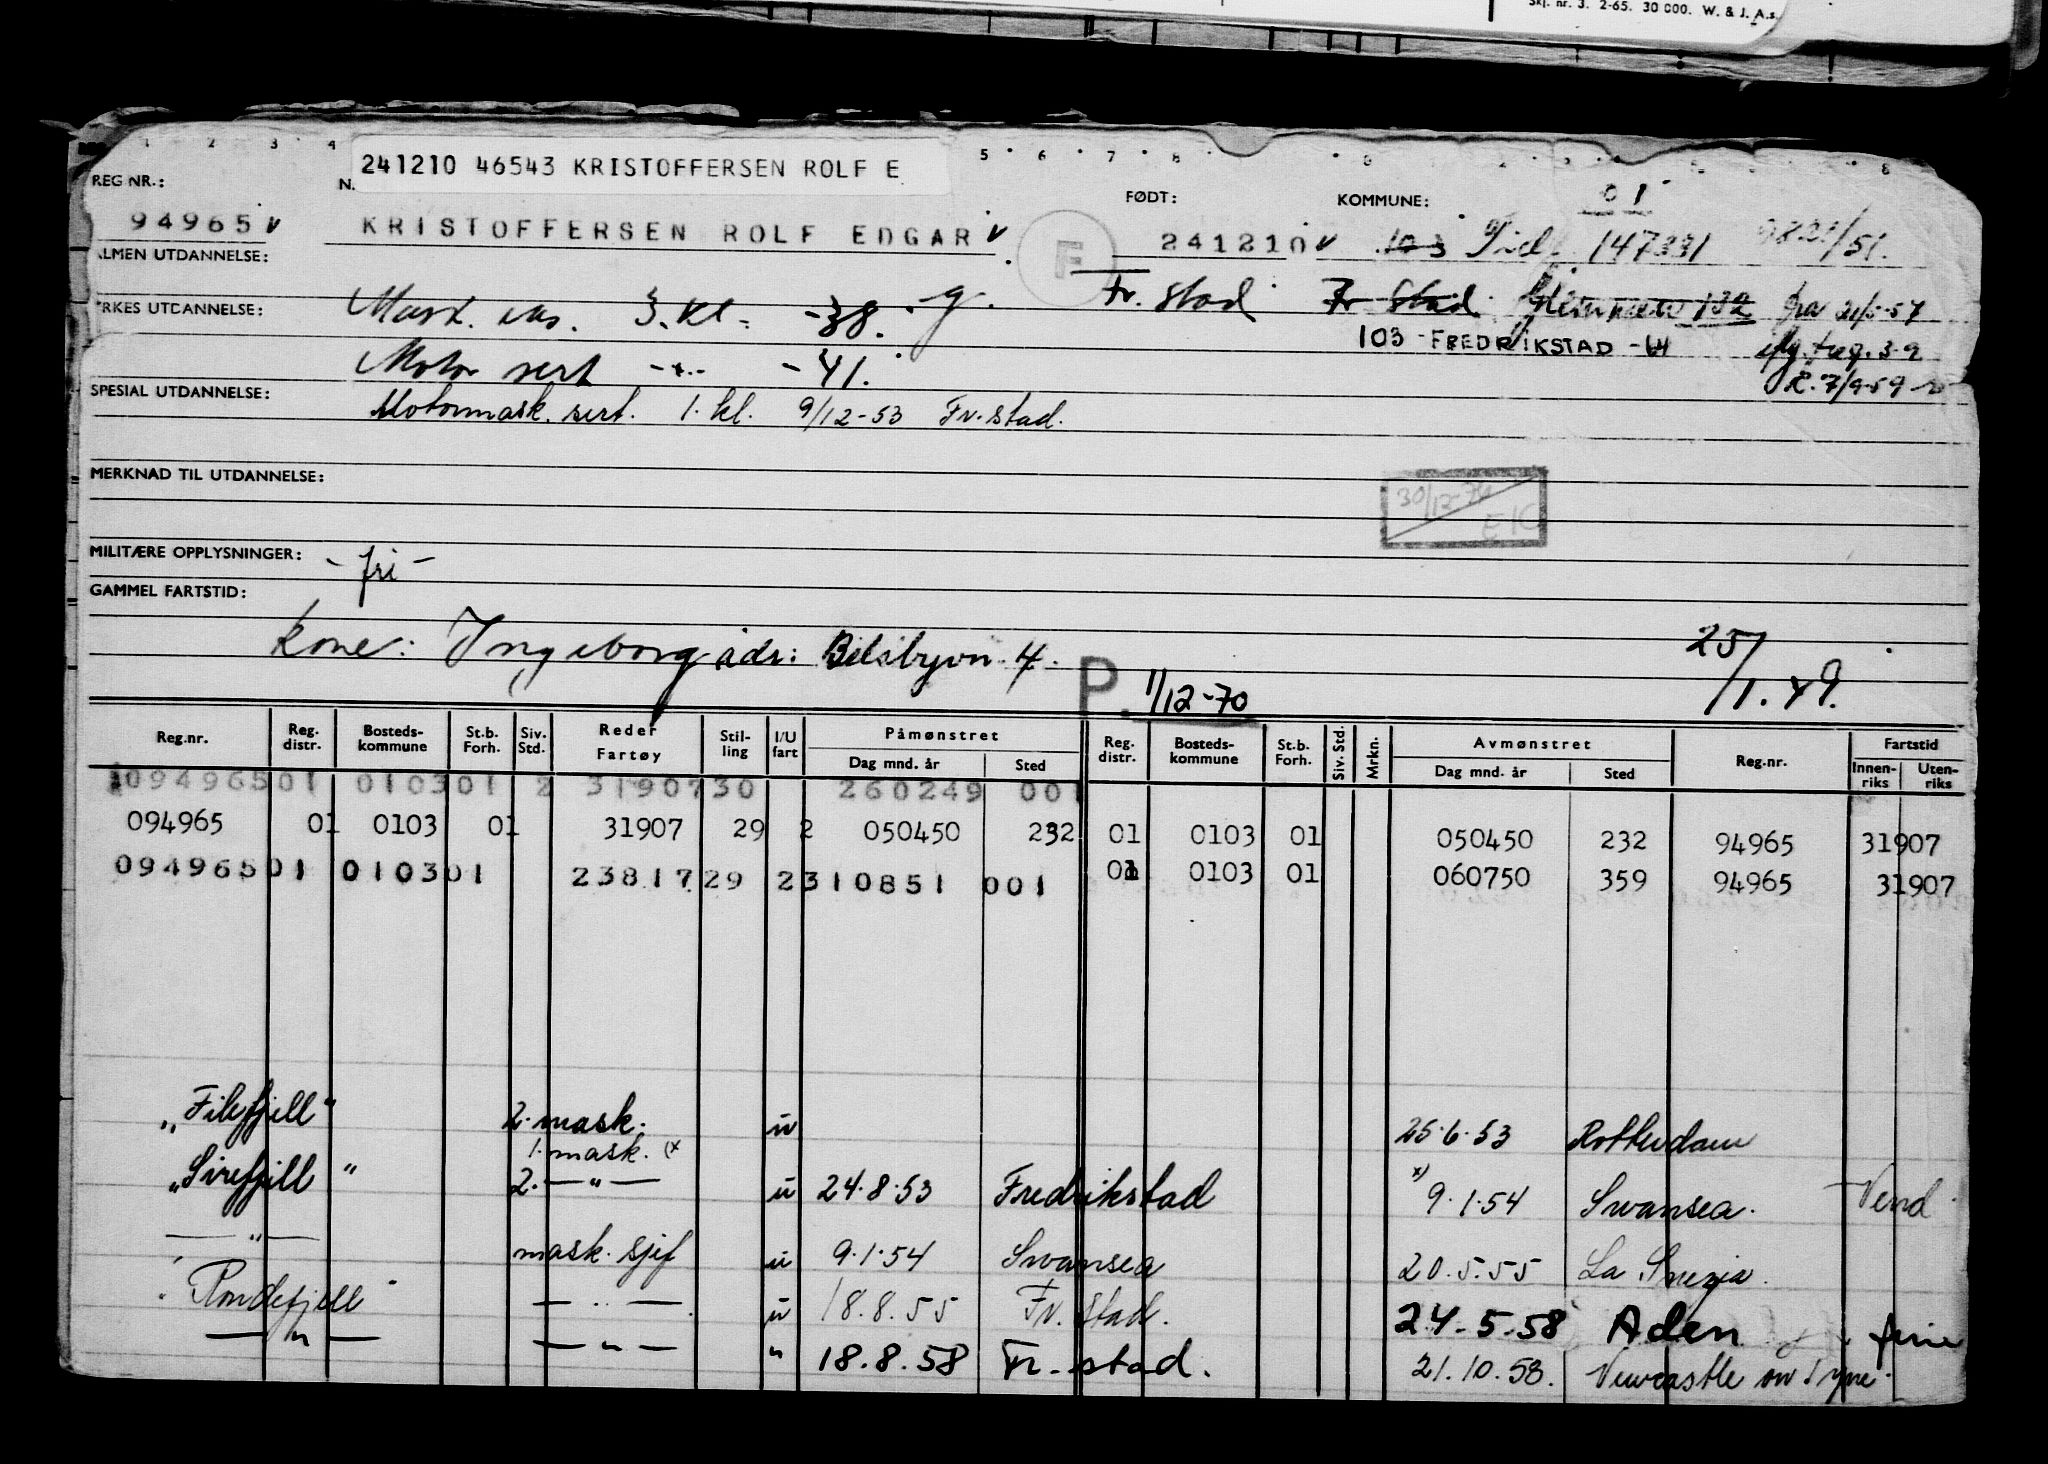 Skj. nr. 3. 2-65. 30 000. W. & J. A.s.
1 2 3 4 5 6 7 8
241210 46543 KRISTOFFERSEN ROLF E
REG NR.: N. FØDT: KOMMUNE: 01
94965 v KRISTOFFERSEN ROLF EDGAR v F 241210 v 103 147331 /51.
ALMEN UTDANNELSE: Fr. stad Fr stad Glemmen 132 fra 21/5-57
YRKES UTDANNELSE: Mask. ass. 3. kl. -38. g.
103 - FREDRIKSTAD - W
Motor sert -"- -41. R. 7/9-59
SPESIAL UTDANNELSE: Motormask. sert. 1. kl. 9/12-53 Fr. stad.
MERKNAD TIL UTDANNELSE:
30/12-70 EK
MILITÆRE OPPLYSNINGER: - fri -
GAMMEL FARTSTID:
Kone: Ingeborg adr: Bilsbyvn. 4. 25/1.49.
P. 1/12-70
Reg.nr. Reg. distr. Bosteds-kommune St.b. Forh. Siv. Std. Reder Fartøy Stil-ling I/U fart Påmønstret Dag mnd. år Sted Reg. distr. Bosteds-kommune St.b. Forh. Siv. Std. Mrkn. Avmønstret Dag mnd. år Sted Reg.nr. Fartstid Innen-riks Uten-riks
094965 01 0103 01 2 31907 30 260249 001
094965 01 0103 01 31907 29 2 050450 232 01 0103 01 050450 232 94965 31907
094965 01 0103 01 23817 29 2 310851 001 01 0103 01 060750 359 94965 31907
"Filefjell" 2. mask. u 25.6.53 Rotterdam
1. mask. (x
"Sirefjell" 2. -"- u 24.8.53 Fredrikstad x) 9.1.54 Swansea. Vend.
-"- mask. sjef u 9.1.54 Swansea 20.5.55 La Spezia.
"Rondefjell" -"- u 18.8.55 Fr. stad. 24-5-58 Aden ferie
-"- -"- " 18.8.58 Fr. stad. 21.10.58. Newcastle on Tyne.